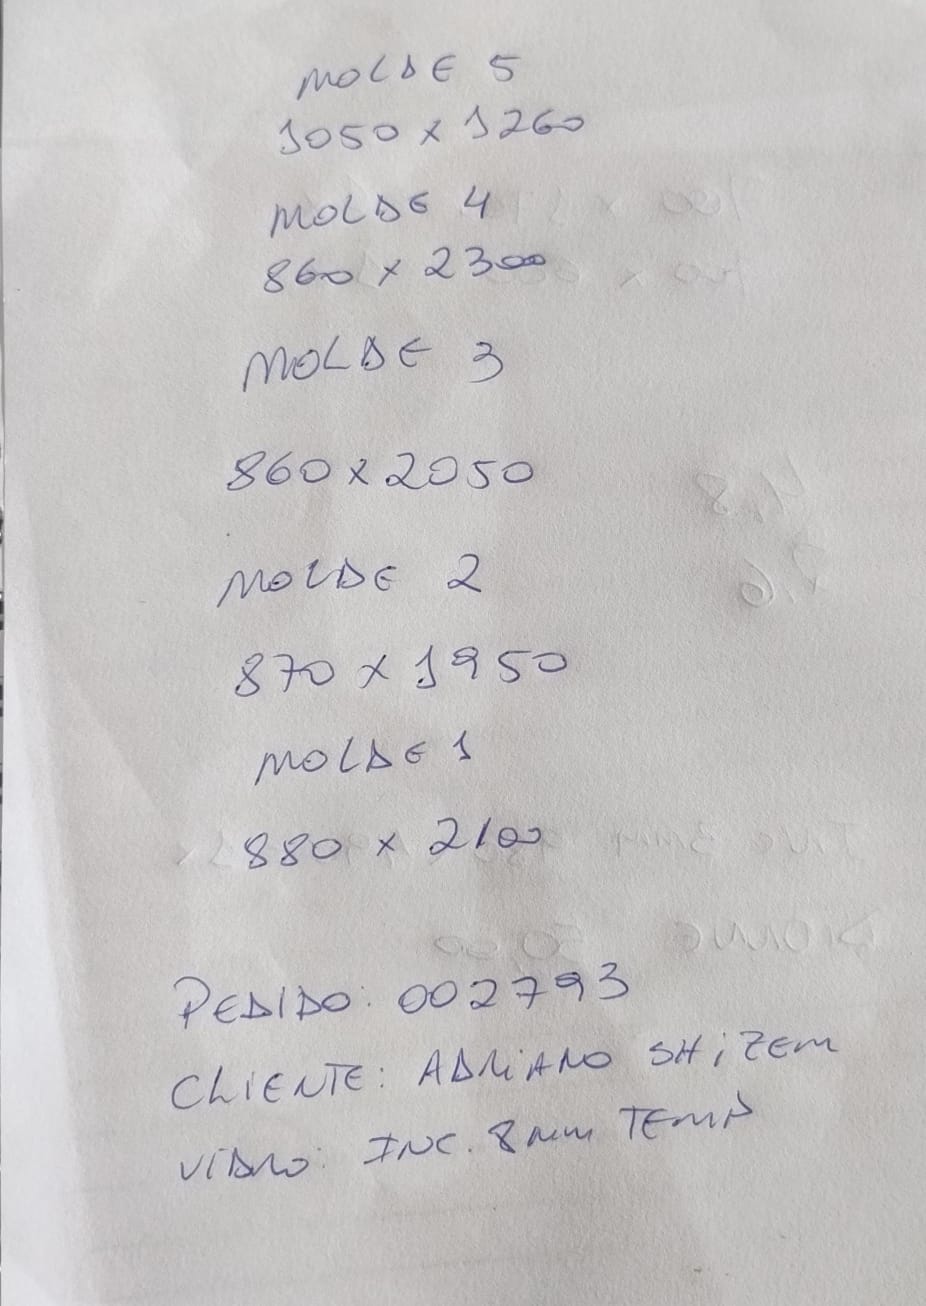 MOLDE 5
1050 x 1260
MOLDE 4
860 x 2300
MOLDE 3
860 x 2050
MOLDE 2
870 x 1950
MOLDE 1
880 x 2100
PEDIDO: 002793
CLIENTE: ADRIANO SHIZEM
VIDRO: INC. 8mm TEMP